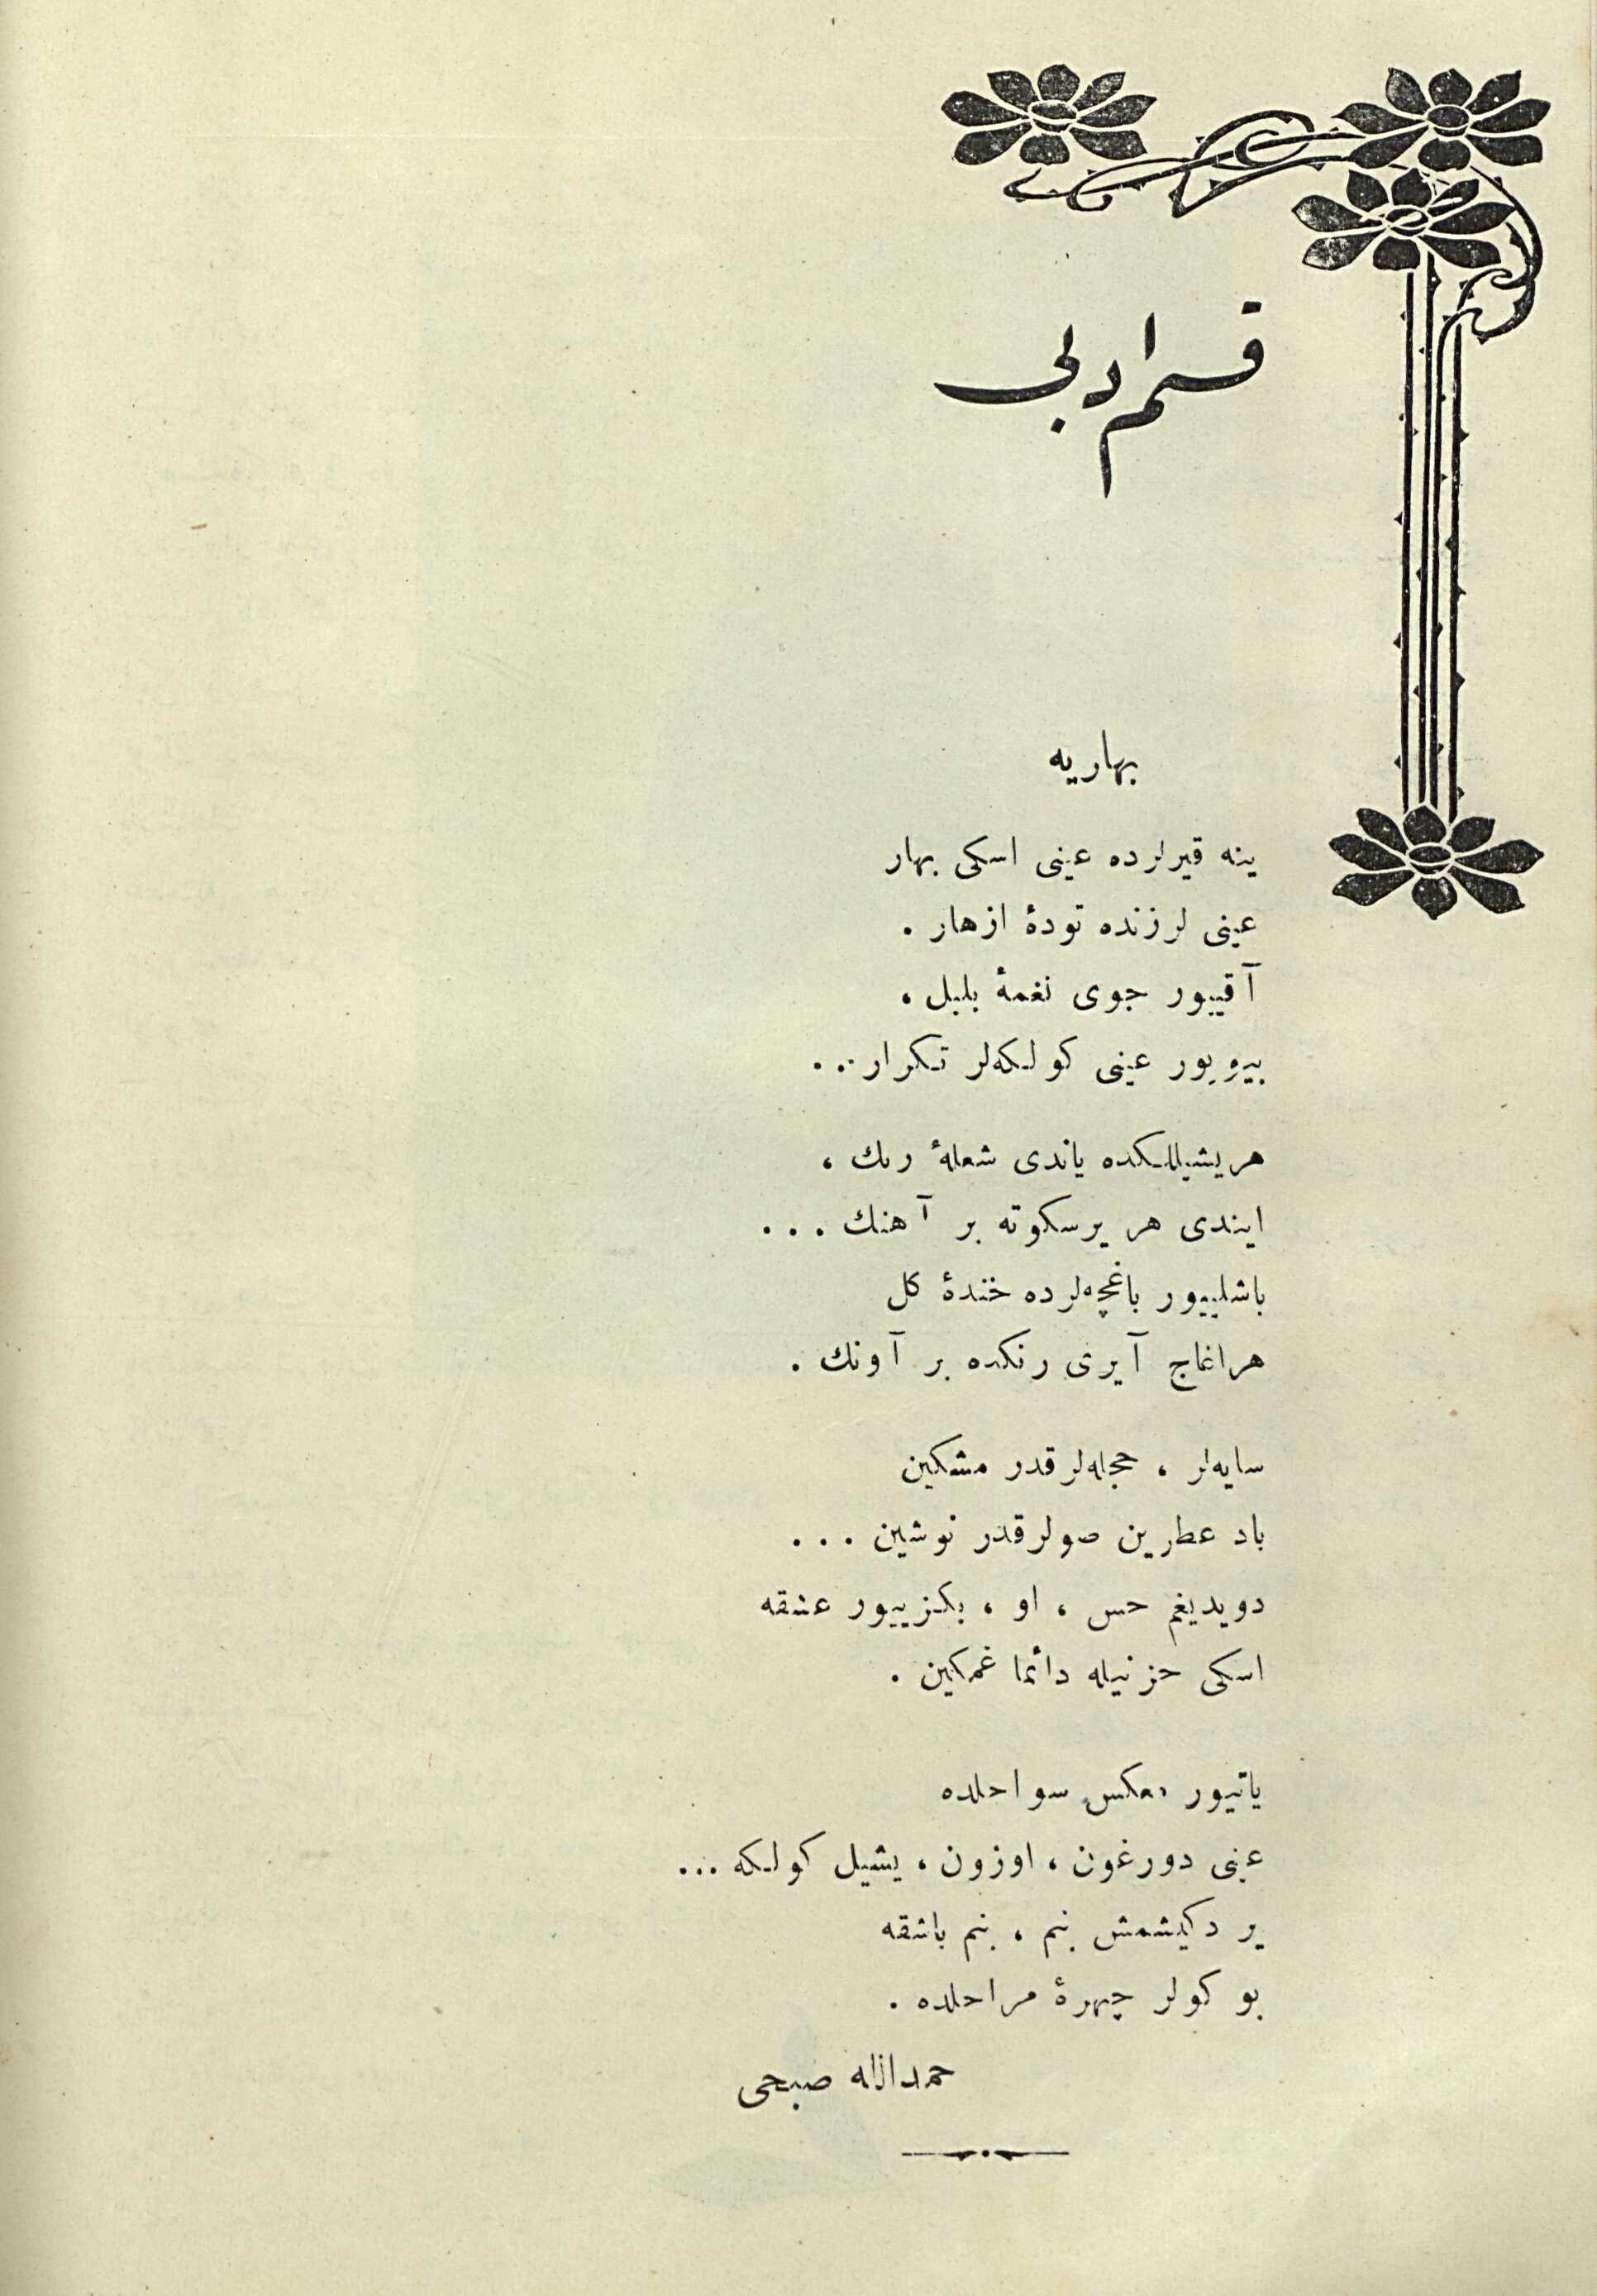 قسم ادبی
بهاریه
ینه قیرلرده عینی اسکی بهار
عینی لرزنده تودهٔ ازهار .
آقیيور جوی نغمهٔ بلبل ،
عینی کولـکه‌لر تـکرار . . .
هر یشیللـکده یاندی شعلهٔ رنك ،
ایندی هر یر سکوته بر آهنك . . .
باشلییور باغچه‌لرده خندهٔ کل
هر اغاج آیری رنکده بر آونك .
سایه‌لر ، حجله‌لر قدر مشکین
باد عطرین صولر قدر نوشین . . .
دویدیغم حس ، او ، بکزییور عشقه
اسکی حزنیله دائما غمکین .
یاتیور سواحلده
عینی دورغون ، اوزون ، یشیل کولـکه ...
یر دکیشمش بنم ، بنم باشقه
بو کولر چهرهٔ مراحلده .
حمدالله صبحی